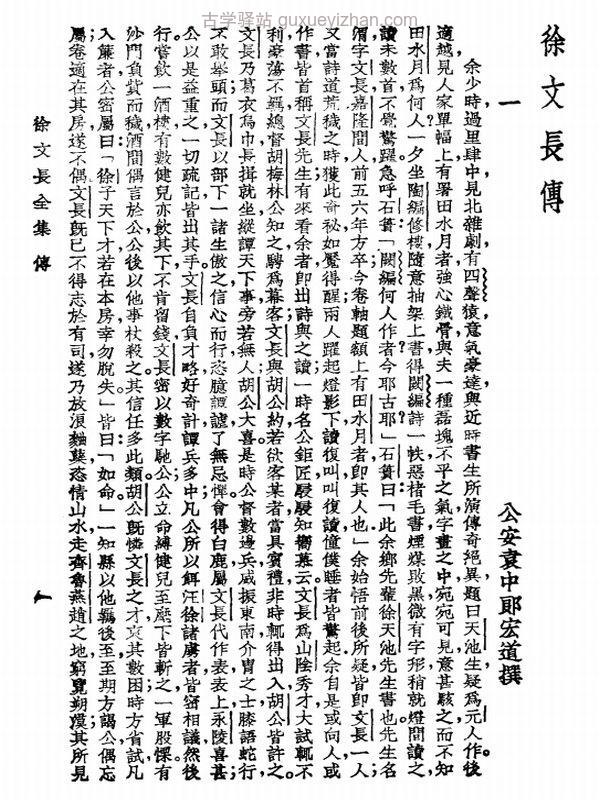 古学驿站 guxueyizhan.com
徐文長傳
公安袁中郎宏道撰
一
余少時過里肆中見北雜劇有四聲猿,意氣豪達與近時書生所演傳奇絕異題曰天池生疑爲元人作。後
適越,見人家單幅上有署田水月者,強心鐵骨,與夫一種磊塊不平之氣,字畫之中,宛宛可見,意甚駭之,而不知
田水月爲何人。一夕坐陶編修樓,隨意抽架上書,得闕編詩一帙,惡楮毛書,煙煤敗黑,微有字形,稍就燈間讀之,
讀未數首,不覺驚躍,急呼石簣:「闕編何人作者?今耶古耶?」石簣曰:「此余鄉先輩徐天池先生書也,先生名
渭,字文長,嘉隆間人,前五六年方卒,今卷軸題額上有田水月者,即其人也。」余始悟前後所疑,皆即文長一人,
又當詩道荒穢之時,獲此奇秘,如魘得醒,兩人躍起,燈影下讀復叫,叫復讀,僮僕睡者皆驚起,余自是或向人或
作書,皆首稱文長先生,有來看余者,即出詩與之讀,一時名公鉅匠,駸駸知嚮慕云。文長爲山陰秀才,大試輒不
利,豪蕩不羈,總督胡梅林公知之,聘爲幕客,文長與胡公約,若欲客某者,當具賓禮,非時輒得出入,胡公皆許之。
文長乃葛衣烏巾,長揖就坐,縱譚天下事,旁若無人,胡公大喜。是時公督數邊兵,威振東南,介胄之士,膝語蛇行,
不敢舉頭,而文長以部下一諸生傲之,信心而行,恣臆譚謔,了無忌憚,會得白鹿,屬文長代作表,表上,永陵喜甚;
公以是益重之,一切疏記,皆出其手。文長自負才略,好奇計,譚兵多中,凡公所以餌汪徐諸虜者,皆密相議然後
行;嘗飲一酒樓,有數健兒亦飲其下,不肯留錢,文長密以數字馳公,公立命縛健兒至麾下,皆斬之,一軍股慄。有
沙門負貲而穢,酒間偶言於公,公後以他事杖殺之,其信任多此類。胡公既憐文長之才,哀其數困,時方省試,凡
入簾者,公密屬曰:「徐子天下才,若在本房,幸勿脫失。」皆曰:「如命」一知縣以他羈後至,至期方謁公,偶忘
屬,卷適在其房,遂不偶。文長既已不得志於有司,遂乃放浪麯蘖,恣情山水,走齊魯燕趙之地,窮覽朔漠,其所見
徐文長全集 傳
一